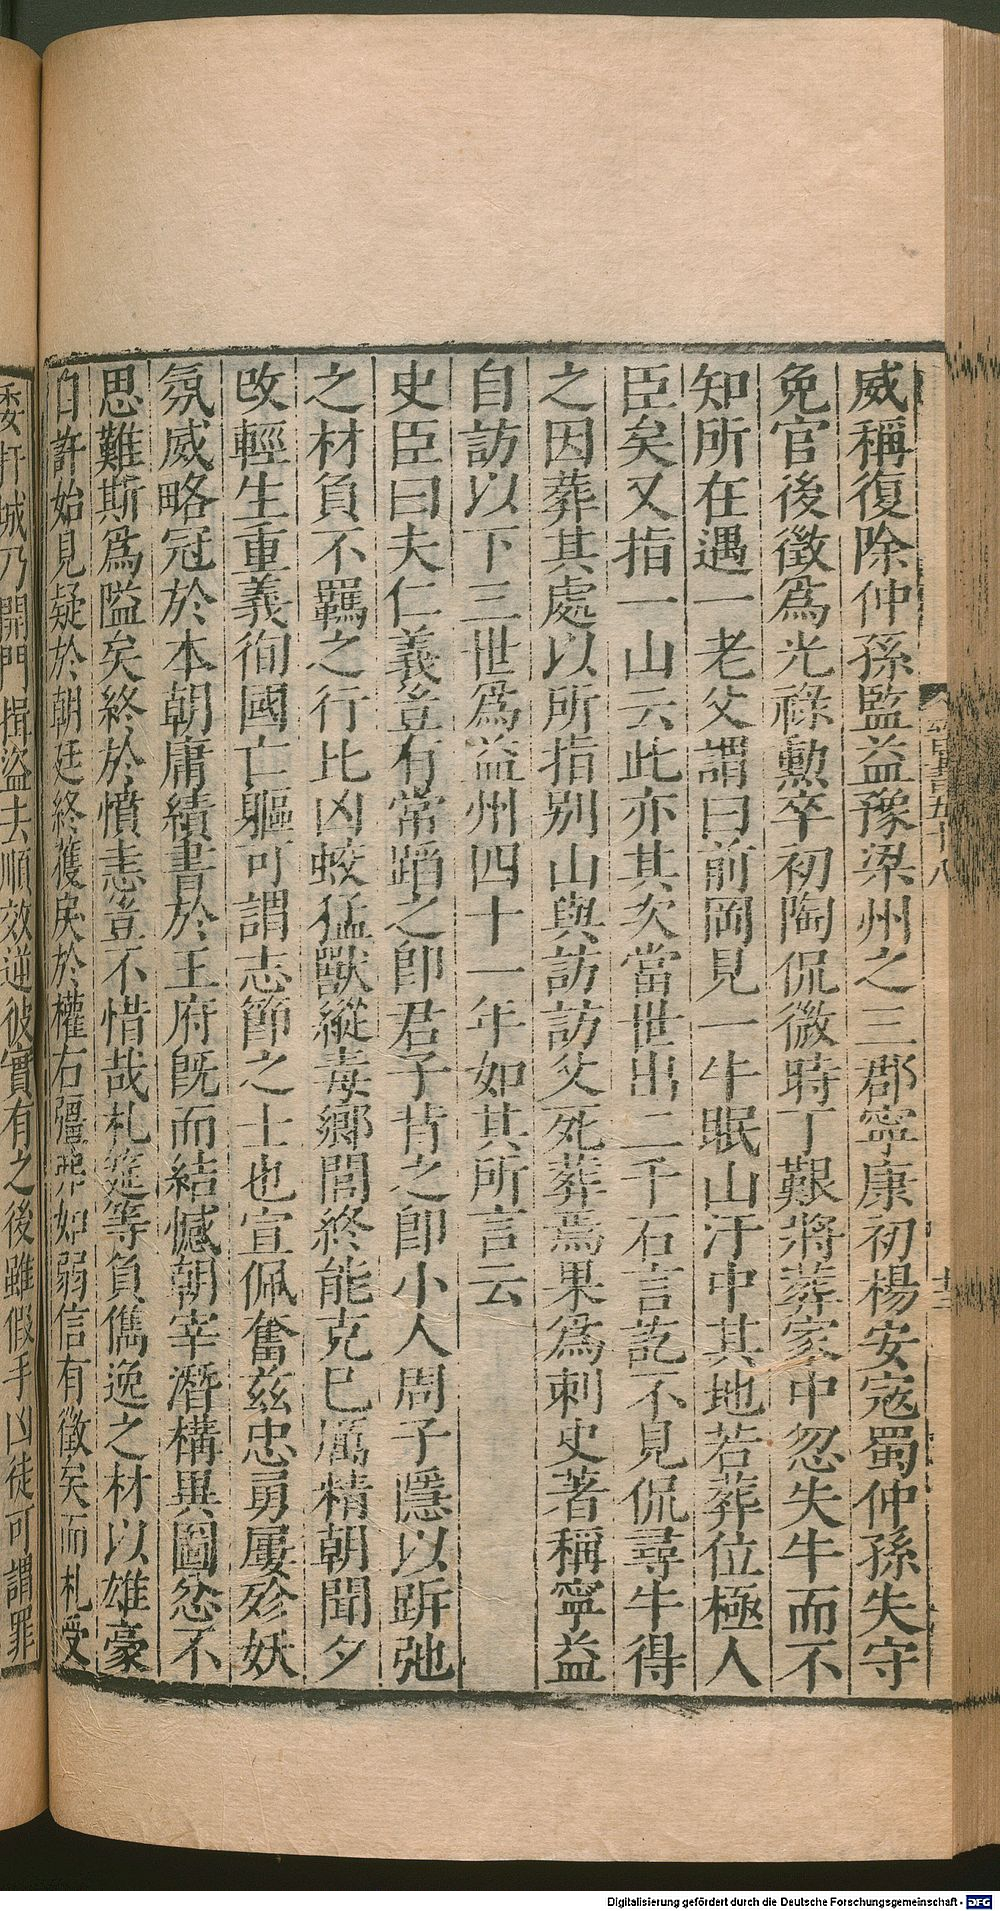 威稱復除仲孫監益豫梁州之三郡寧康初楊安寇蜀仲孫失守
免官後徵爲光祿勲卒初陶侃微時丁艱將葬家中忽失牛而不
知所在遇一老父謂曰前岡見一牛眠山汙中其地若葬位極人
臣矣又指一山云此亦其次當世出二千石言訖不見侃尋牛得
之因葬其處以所指别山與訪訪父死葬焉果爲刺史著稱寧益
自訪以下三世爲益州四十一年如其所言云
史臣曰夫仁義豈有常蹈之卽君子背之卽小人周子隱以跅弛
之材負不羈之行比凶蛟猛獸縱毒鄉閭終能克己厲精朝聞夕
改輕生重義徇國亡軀可謂志節之士也宣佩奮兹忠勇屢殄妖
氛威略冠於本朝庸績書於王府旣而結憾朝宰潛構異圖忿不
思難斯爲隘矣終於憤恚豈不惜哉札筵等負儁逸之材以雄豪
自許始見疑於朝廷終獲戾於權右彊弗如弱信有徵矣而札受
委扞城乃開門揖盜去順效逆彼實有之後雖假手凶徒可謂罪
Digitalisierung gefördert durch die Deutsche Forschungsgemeinschaft - DFG